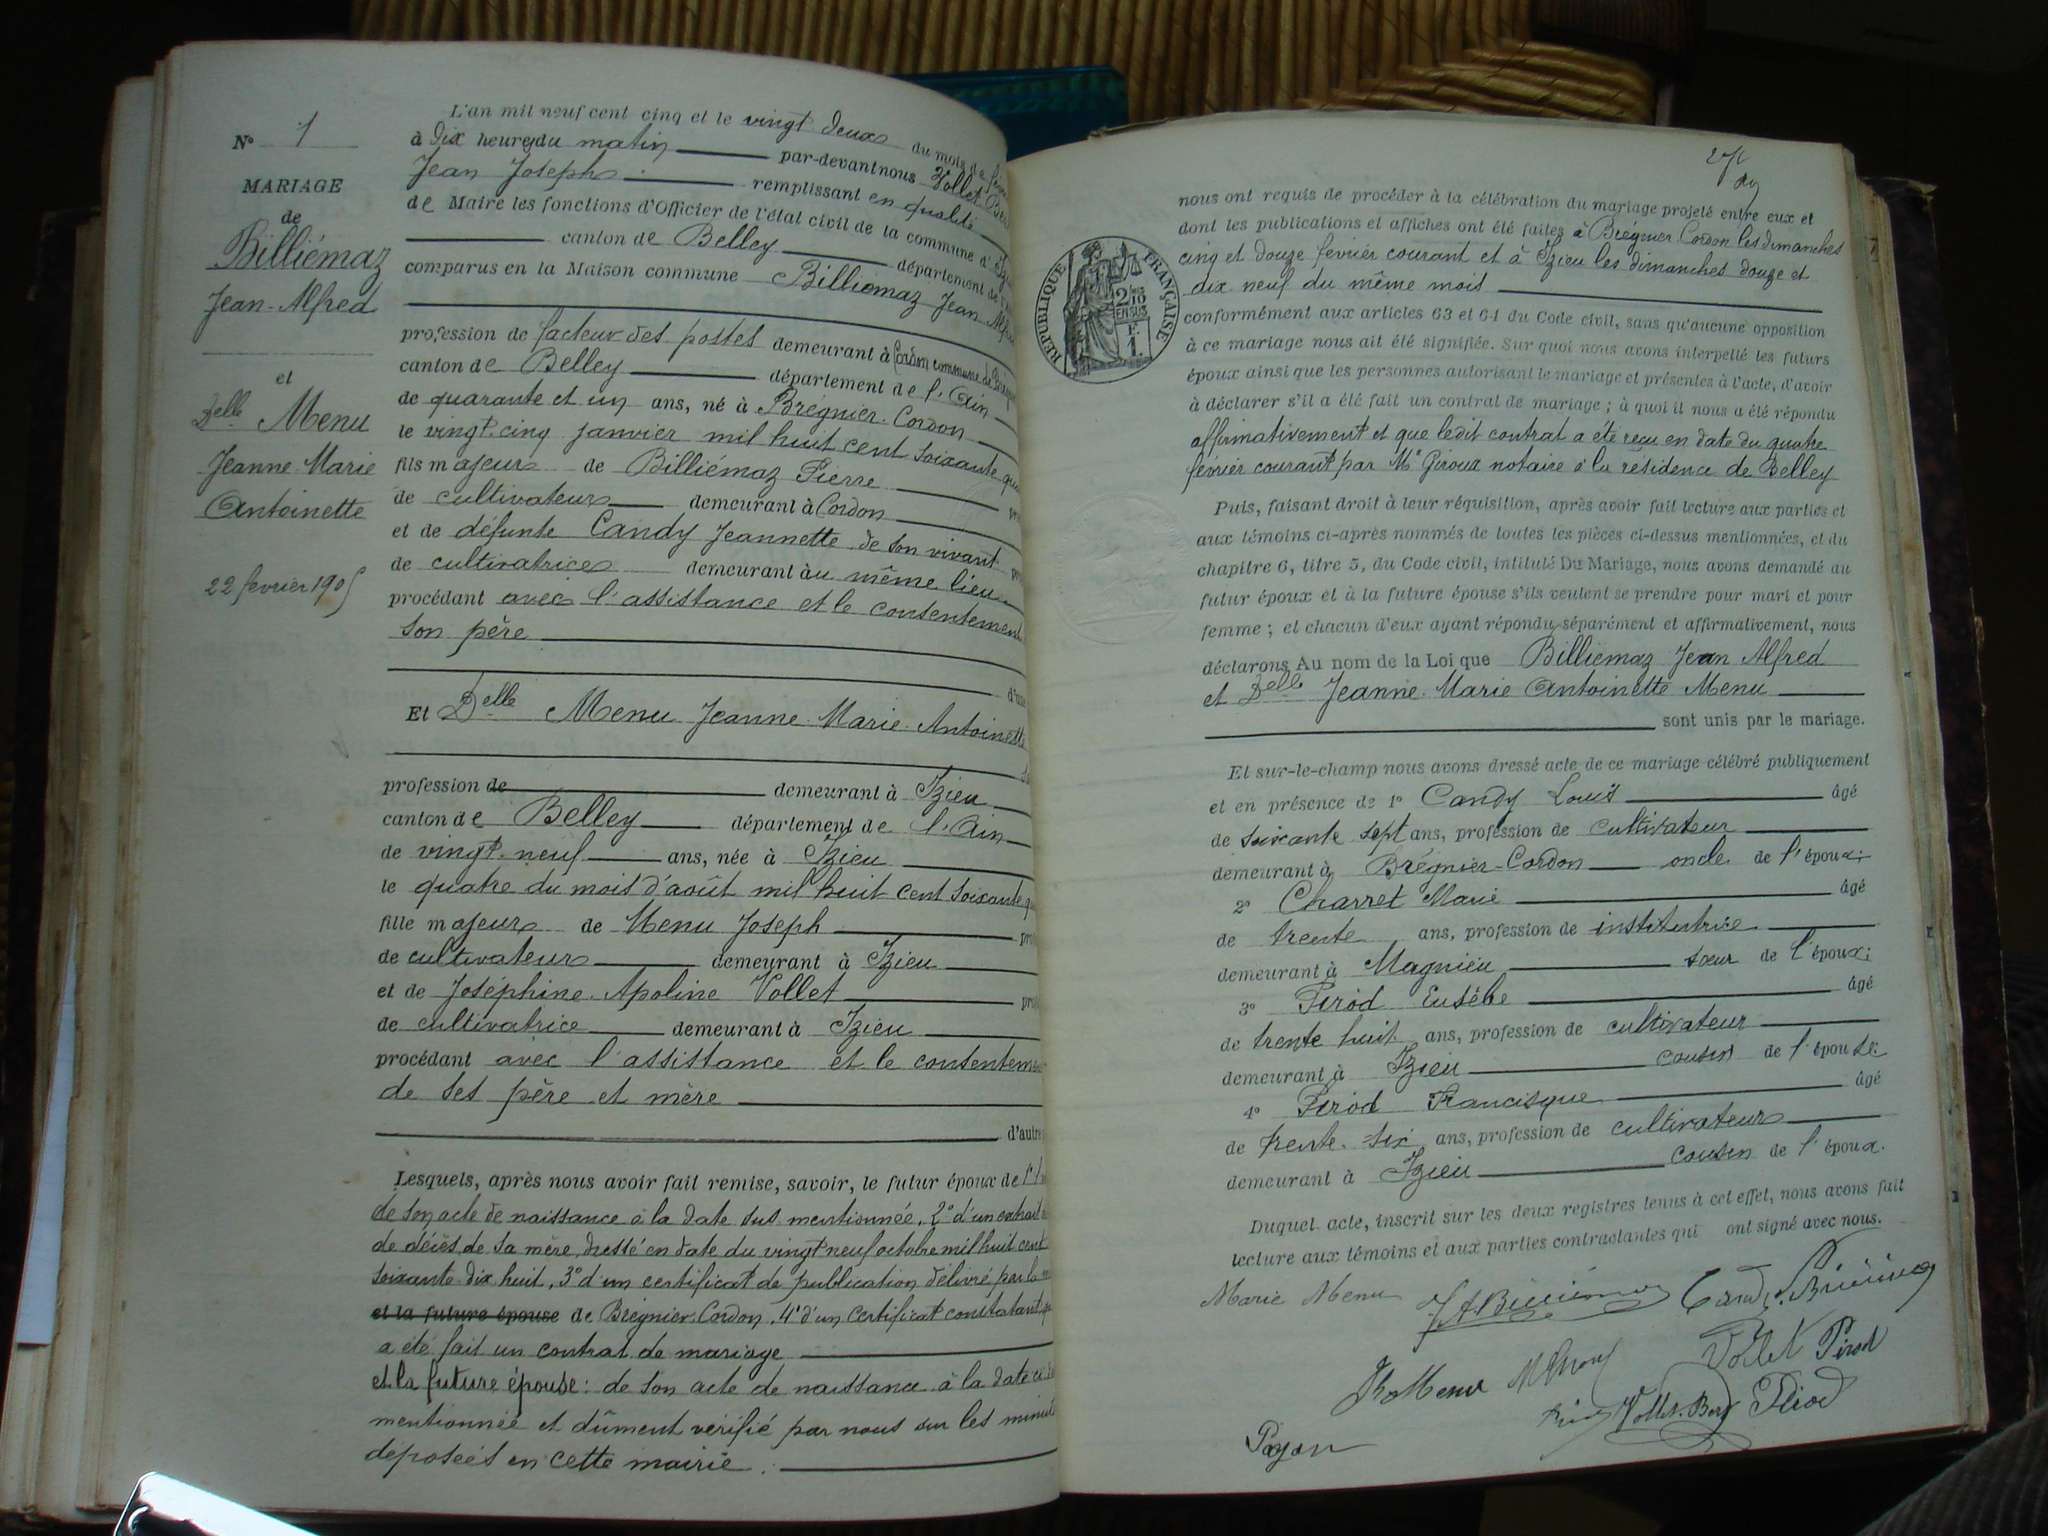 N° 1
MARIAGE
de
Billiémaz
Jean-Alfred
et
Delle Menu
Jeanne Marie
Antoinette
22 fevrier 1905
L'an mil neuf cent cinq et le vingt deux du mois de
à dix heures du matin par-devant nous Vollet
Jean Joseph remplissant en qualité
de Maire les fonctions d'Officier de l'état civil de la commune d'
canton de Belley département de
comparus en la Maison commune Billiémaz Jean
profession de facteur des postes demeurant à Cordon commune de
canton de Belley département de l'Ain
de quarante et un ans, né à Brégnier-Cordon
le vingt-cinq janvier mil huit cent soixante
fils majeur de Billiémaz Pierre
de cultivateur demeurant à Cordon
et de défunte Candy Jeannette de son vivant
de cultivatrice demeurant au même lieu
procédant avec l'assistance et le consentement
son père
Et Delle Menu Jeanne Marie Antoinette
profession de demeurant à Izieu
canton de Belley département de l'Ain
de vingt-neuf ans, née à Izieu
le quatre du mois d'août mil huit cent soixante
fille majeure de Menu Joseph
de cultivateur demeurant à Izieu
et de Joséphine Apoline Vollet
de cultivatrice demeurant à Izieu
procédant avec l'assistance et le
de ses père et mère
d'autre
Lesquels, après nous avoir fait remise, savoir, le futur époux de
de son acte de naissance à la date sus mentionnée, 2° d'un extrait
de décès de sa mère, dressé en date du vingt neuf octobre mil huit cent
soixante dix huit, 3° d'un certificat de publication délivré par la
et la future épouse de Brégnier-Cordon, 4° d'un certificat constatant
a été fait un contrat de mariage
et la future épouse: de son acte de naissance à la date
mentionnée et dûment vérifié par nous sur les
déposées en cette mairie.
nous ont requis de procéder à la célébration du mariage projeté entre eux et
dont les publications et affiches ont été faites à Brégnier-Cordon les dimanches
cinq et douze février courant et à Izieu les dimanches douze et
dix neuf du même mois
conformément aux articles 63 et 64 du Code civil, sans qu'aucune opposition
à ce mariage nous ait été signifiée. Sur quoi nous avons interpellé les futurs
époux ainsi que les personnes autorisant le mariage et présentes à l'acte, d'avoir
à déclarer s'il a été fait un contrat de mariage ; à quoi il nous a été répondu
affirmativement et que ledit contrat a été reçu en date du quatre
février courant par Me Giroux notaire à la résidence de Belley
RÉPUBLIQUE FRANÇAISE
2/10
EN SUS
F.
1.
Puis, faisant droit à leur réquisition, après avoir fait lecture aux parties et
aux témoins ci-après nommés de toutes les pièces ci-dessus mentionnées, et du
chapitre 6, titre 5, du Code civil, intitulé Du Mariage, nous avons demandé au
futur époux et à la future épouse s'ils veulent se prendre pour mari et pour
femme ; et chacun d'eux ayant répondu séparément et affirmativement, nous
déclarons Au nom de la Loi que Billiémaz Jean Alfred
et Delle Jeanne Marie Antoinette Menu
sont unis par le mariage.
Et sur-le-champ nous avons dressé acte de ce mariage célébré publiquement
et en présence de 1° Candy Louis âgé
de soixante sept ans, profession de cultivateur
demeurant à Brégnier-Cordon oncle de l'époux;
2° Charret Marie âgé
de trente ans, profession de institutrice
demeurant à Magnieu sœur de l'époux;
3° Pirod Eusèbe âgé
de trente huit ans, profession de cultivateur
demeurant à Izieu cousin de l'épouse;
4° Pirod Francisque âgé
de trente-six ans, profession de cultivateur
demeurant à Izieu cousin de l'époux.
Duquel acte, inscrit sur les deux registres tenus à cet effet, nous avons fait
lecture aux témoins et aux parties contractantes qui ont signé avec nous.
Marie Menu J A Billiémaz Candy
Menu Vollet Pirod
Vollet Pirod